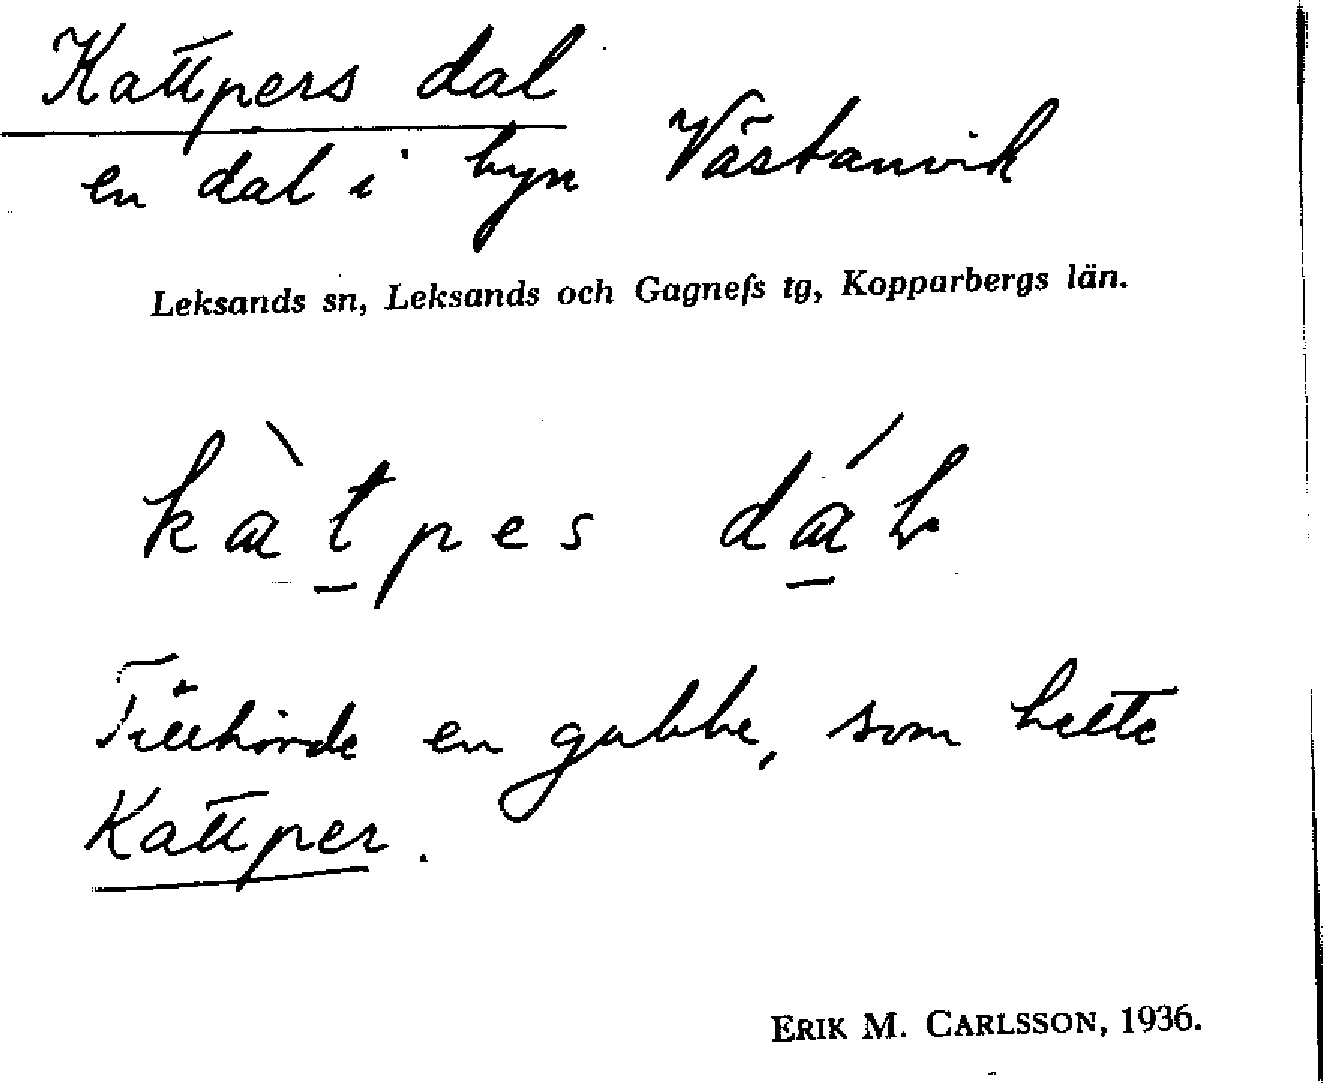 Kattpers dal
en dal i byn Västanvik
Leksands sn, Leksands och Gagnefs tg, Kopparbergs län.
kàt̠pes dá̠ƚ
Tillhörde en gubbe, som hette
Kattper.
ERIK M. CARLSSON, 1936.